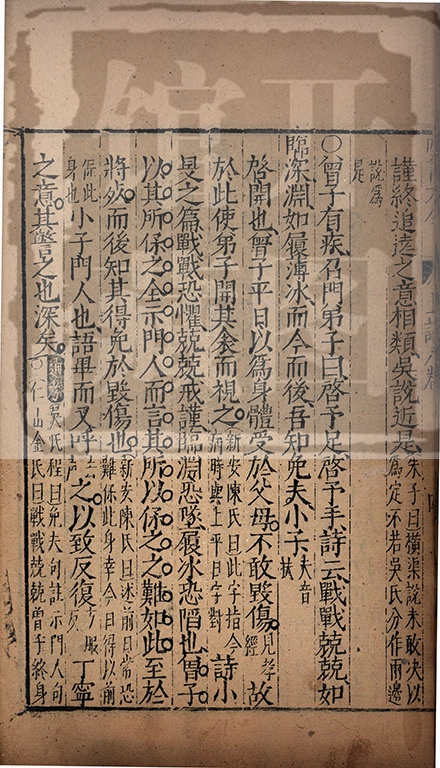 謹終追遠之意相類吳說近是朱子曰橫渠說未敢決以
爲定不若吳氏分作兩邊
說爲
是
〇曾子有疾召門弟子曰啓予足啓予手詩云戰戰兢兢如
臨深淵如履薄冰而今而後吾知免夫小子夫音
扶
啓開也曾子平日以爲身體受於父母不敢毀傷見孝
經故
於此使弟子開其衾而視之新安陳氏曰此字指今
病時與上平日字對詩小
旻之篇戰戰恐懼兢兢戒謹臨淵恐墜履冰恐陷也曾子
以其所保之全示門人而言其所以保之之難如此至於
將死而後知其得免於毀傷也新安陳氏曰述前日常恐
難保此身幸今日得以前
保此
身也小子門人也語畢而又呼之以致反復丁寧
之意其警之也深矣通考吳氏程曰免夫句註示門人句
〇仁山金氏曰戰戰兢兢曾子終身